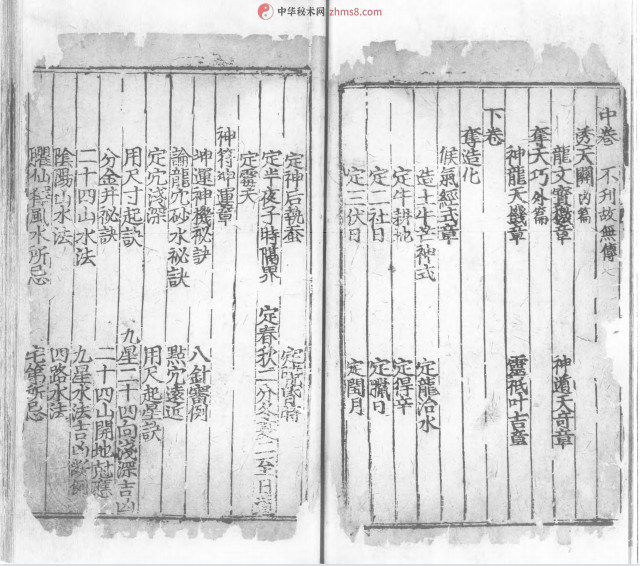 中华秘术网 zhms8.com
中卷 不刊故無傳
透天關 内篇
龍文寶檄章 神遁天奇章
奪天巧 外篇
神龍天籙章 靈祇叶吉章
下卷
奪造化
候氣經式章
造土牛芒神式 定龍治水
定牛耕地 定得辛
定二社日 定臘日
定三伏日 定閏月
定神后執蚕
定半夜子時隔界 定春秋二分冬夏二至日
定霉天
神符坤運章
坤運神機秘訣 八針實例
論龍穴砂水秘訣 點穴遠近
定穴淺深 用尺起星訣
用尺寸起訣 九星二十四向淺深吉凶
分金井秘訣 二十四山開地對應
二十四山水法 九星水法吉凶
陰陽山水法 四路水法
臞仙擇風水所忌 宅第所忌